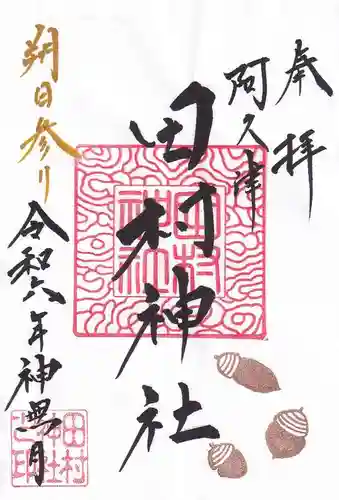 奉拝
阿久津
田村神社
朔日参り
令和六年神無月
田村神社
田村神社之印